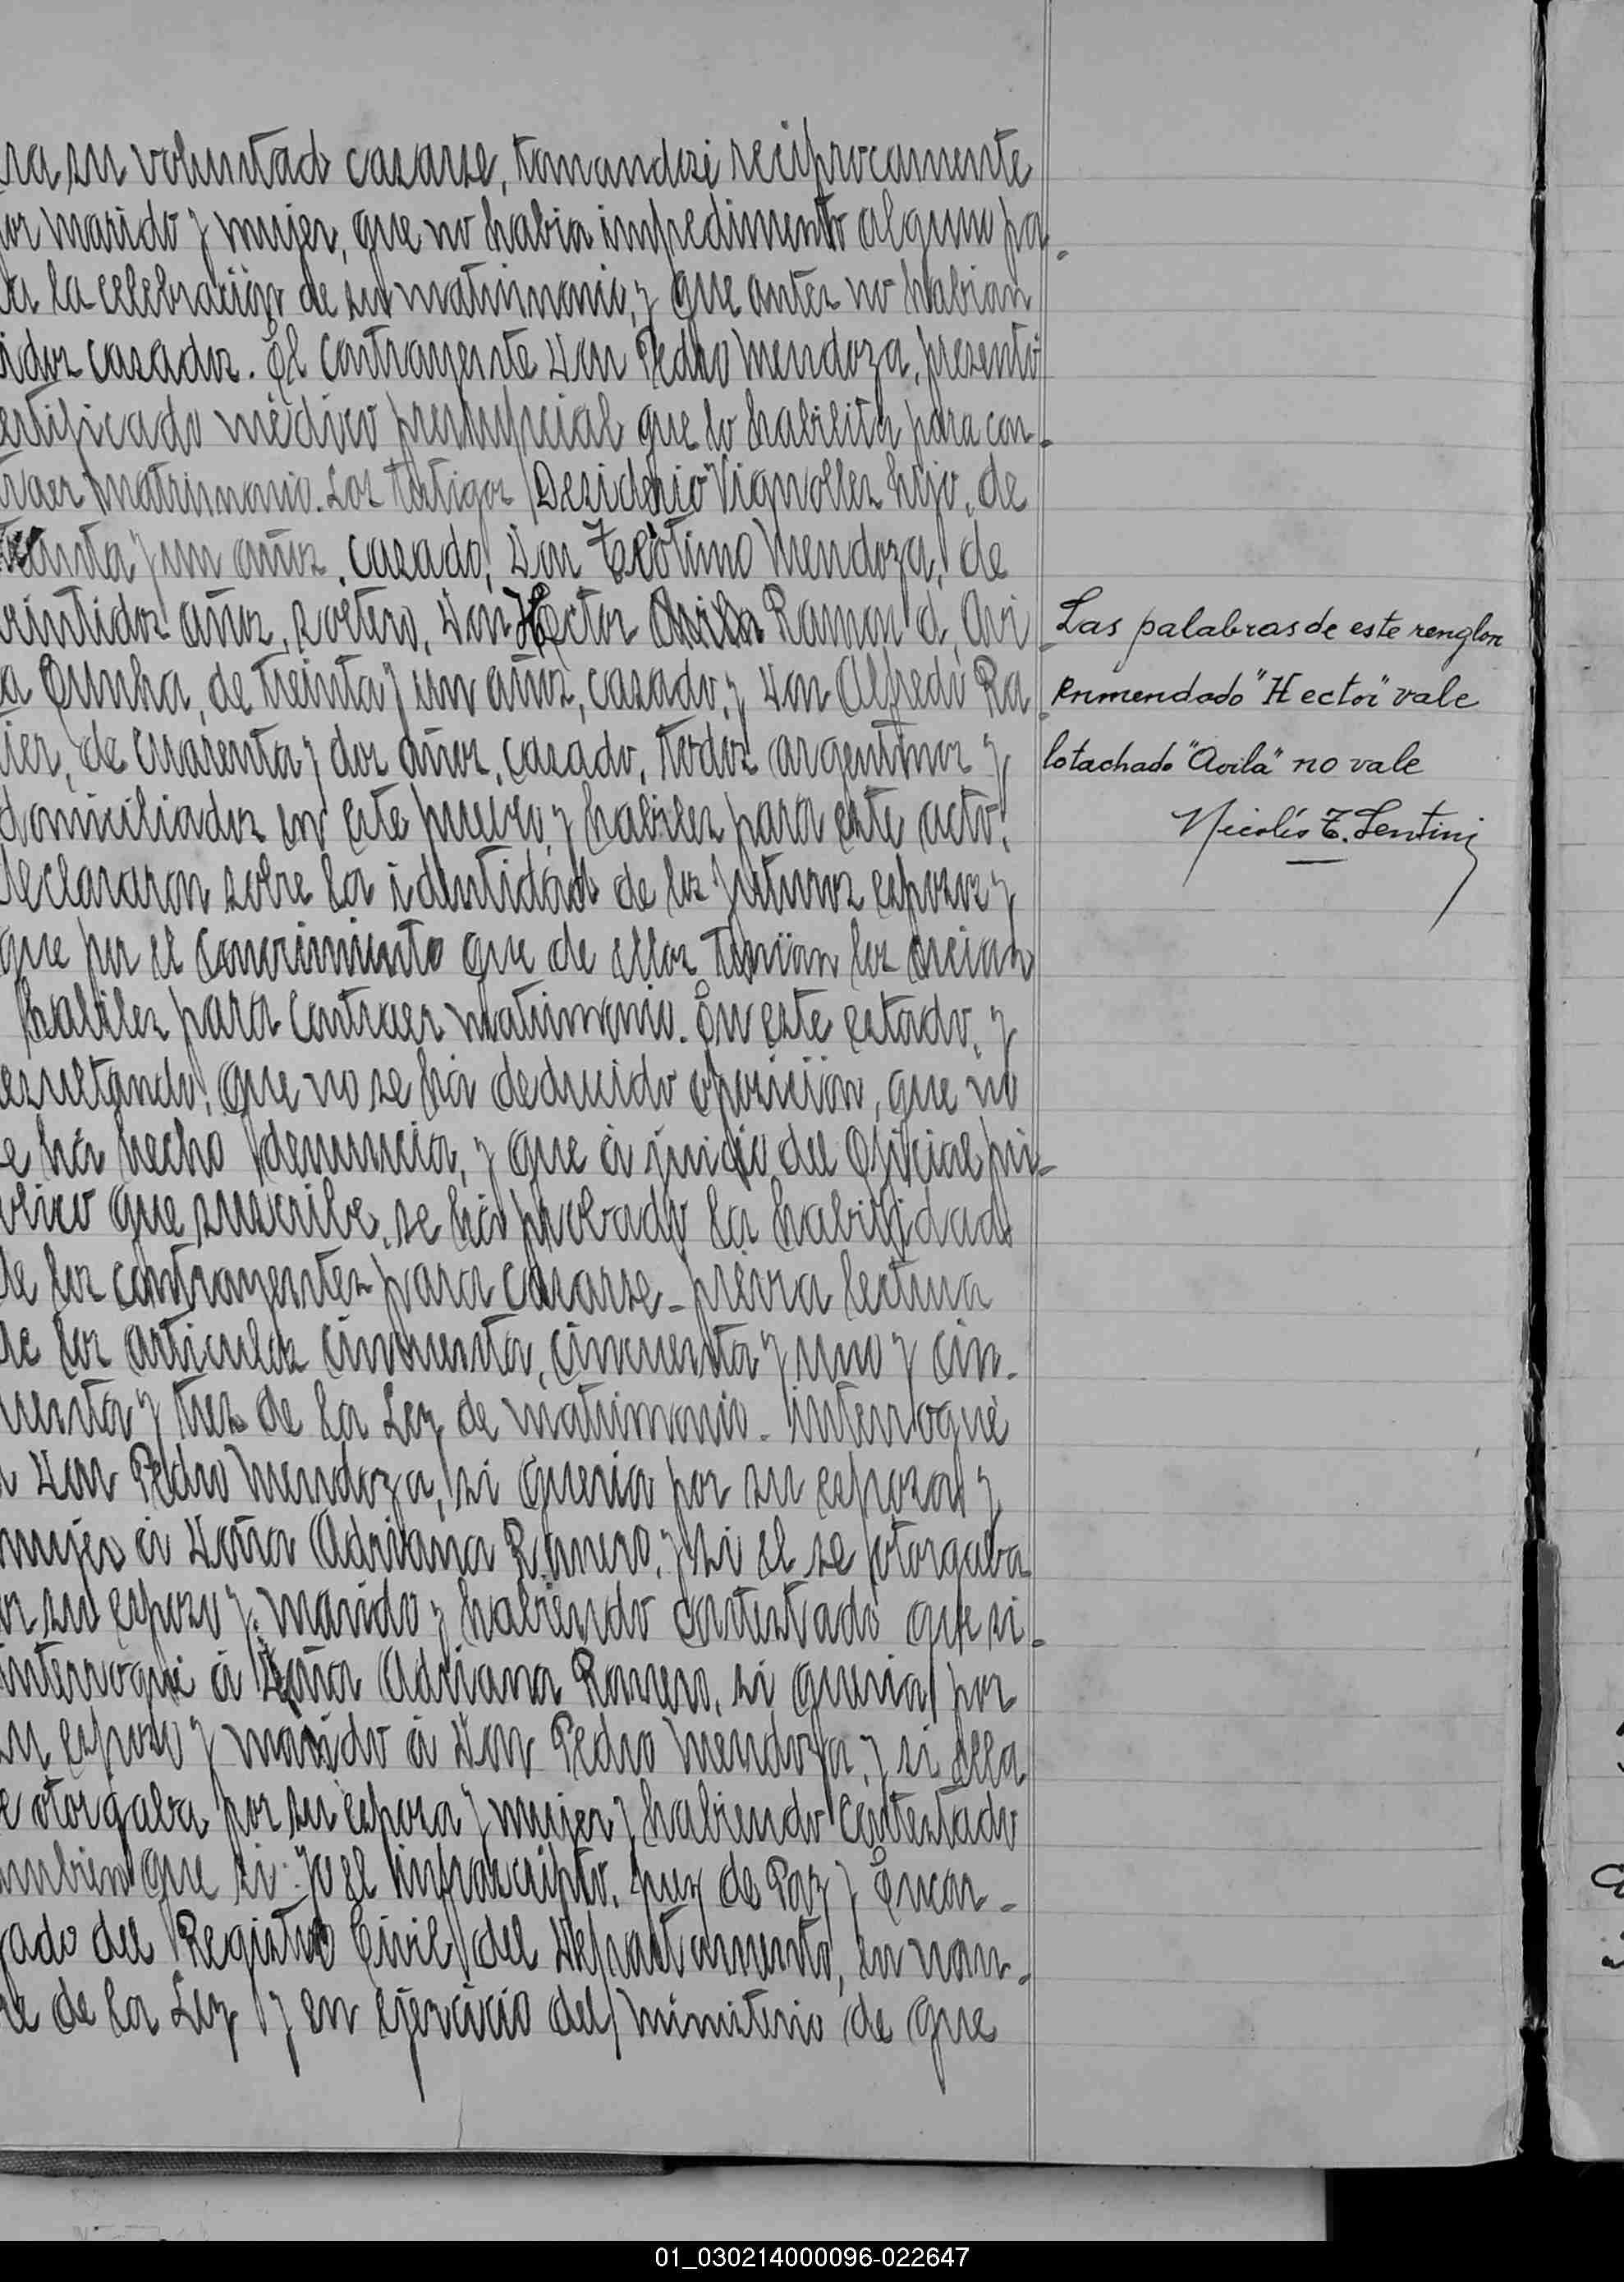 ra su voluntad casarse, tomandose reciprocamente
or marido y mujer, que no habia impedimento alguno pa-
ra la celebración de su matrimonio, y que antes no habian
idos casados. El contrayente Don Pedro Mendoza, presentó
ertificado médico prenupcial que lo habilita para con-
traer matrimonio. Los testigos Desiderio Vignolles hijo, de
treinta y un años, casado, Don Teótimo Mendoza, de
veintidos años, soltero, Don Hector Avila Ramon d, Avi
a Cunha, de treinta y un años, casado, y Don Alfredo Ra
ier, de cuarenta y dos años, casado, todos argentinos y
domiciliados en este pueblo, y habiles para este acto,
declararon sobre la identidad de los futuros esposos y
que por el conocimiento que de ellos tenian los creian
habiles para contraer matrimonio. En este estado, y
esultando, que no se há deducido oposición, que no
e há hecho denuncia, y que á juicio del Oficial pú-
blico que suscribe, se há probado la habilidad
de los contrayentes para casarse - previa lectura
de los articulos cincuenta, cincuenta y uno y cin-
uenta y tres de la Ley de matrimonio - interrogué
a Don Pedro Mendoza, si queria por su esposa y
mujer á Doña Adriana Romero, y si el se otorgaba
or su esposo y marido y habiendo contestado que si -
interrogué á Doña Adriana Romero, si queria por
su esposo y marido á Don Pedro Mendoza, y si ella
e otorgaba por su esposa y mujer y habiendo contestado
ambien que si: yo el infrascripto, Juez de Paz y Encar-
gado del Registro Civil del Departamento, en nom-
re de la Ley y en ejercicio del ministerio de que
Las palabras de este renglon
Enmendado "Hector" vale
lo tachado "Avila" no vale
Nicolís T. Lentini
01_030214000096-022647